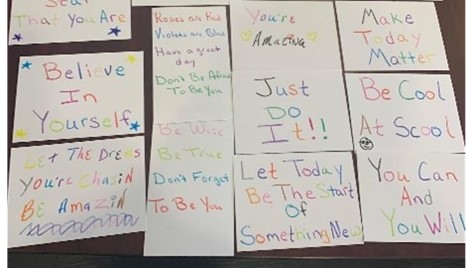 Star
That You Are
Believe
In
Yourself
Let The Drems
You're Chasin
Be Amazin
Roses are Red
Violets are Blue
Have a great
day
Don't Be Afraid
To Be You
Be Wise
Be True
Don't Forget
To Be You
You're
Amazing
Just
Do
It!!
Let Today
Be The Start
Of
Something New
Make
Today
Matter
Be Cool
At Scool
You Can
And
You Will